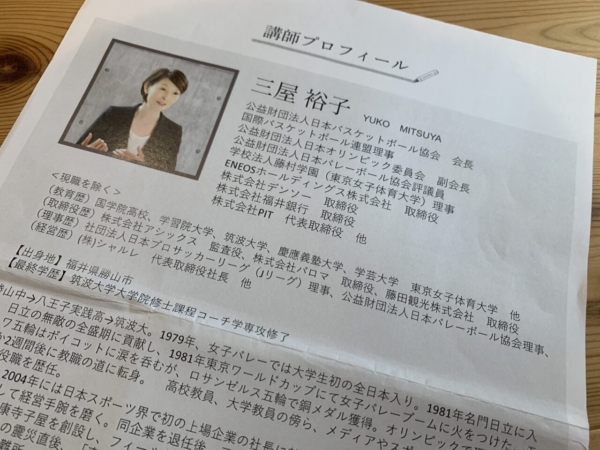 講師プロフィール
三屋 裕子 YUKO MITSUYA
公益財団法人日本バスケットボール協会 会長
国際バスケットボール連盟理事
公益財団法人日本オリンピック委員会 副会長
公益財団法人日本バレーボール協会評議員
学校法人藤村学園（東京女子体育大学）理事
ENEOSホールディングス株式会社 取締役
株式会社デンソー 取締役
株式会社福井銀行 取締役
株式会社PIT 代表取締役 他
＜現職を除く＞
（教育歴）国学院高校、学習院大学、筑波大学、慶應義塾大学、学芸大学 東京女子体育大学 他
（取締役歴）株式会社アシックス 監査役、株式会社パロマ 取締役、藤田観光株式会社 取締役
（理事歴）社団法人日本プロサッカーリーグ（Jリーグ）理事、公益財団法人日本バレーボール協会理事、
（経営歴）(株)シャルレ 代表取締役社長 他
【出身地】福井県勝山市
【最終学歴】筑波大学大学院修士課程コーチ学専攻修了
勝山中→八王子実践高→筑波大。1979年、女子バレーでは大学生初の全日本入り。1981年名門日立に入
日立の無敵の全盛期に貢献し、1981年東京ワールドカップにて女子バレーブームに火をつけた。モ
ワ五輪はボイコットに涙を呑むが、ロサンゼルス五輪で銅メダル獲得。オリンピックで
か2週間後に教職の道に転身。 高校教員、大学教員の傍ら、メディアやスポ
役職を歴任。
2004年には日本スポーツ界で初の上場企業の社長に
して経営手腕を磨く。同企業を退任後、
康寺子屋を創設し、フィー
の震災直後、「オ